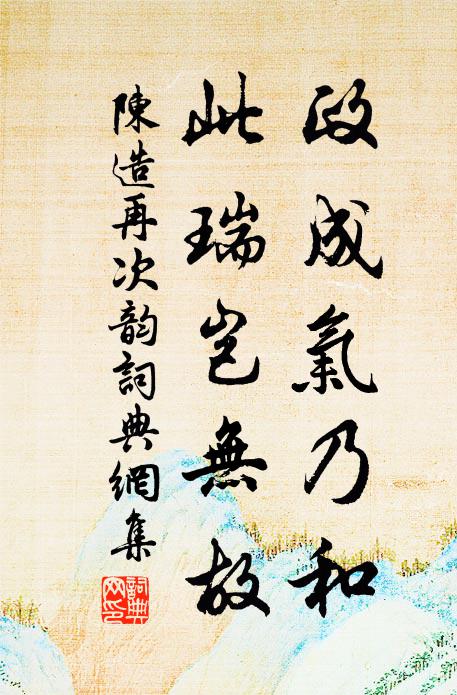 政成氣乃和
此瑞豈無故
陳造再次韵詞典網集
詞典网印